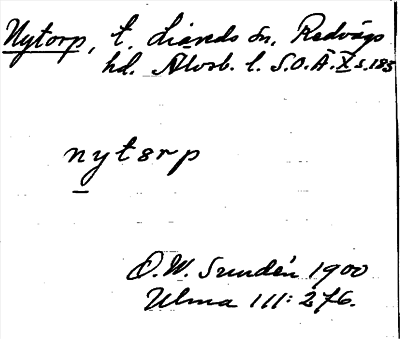 Nytorp, t. Liareds sn, Redvägs
hd. Älvsb. l. S.O.Ä. X s. 185
nytorp
O.W. Sundén 1900
Ulma 111: 276.